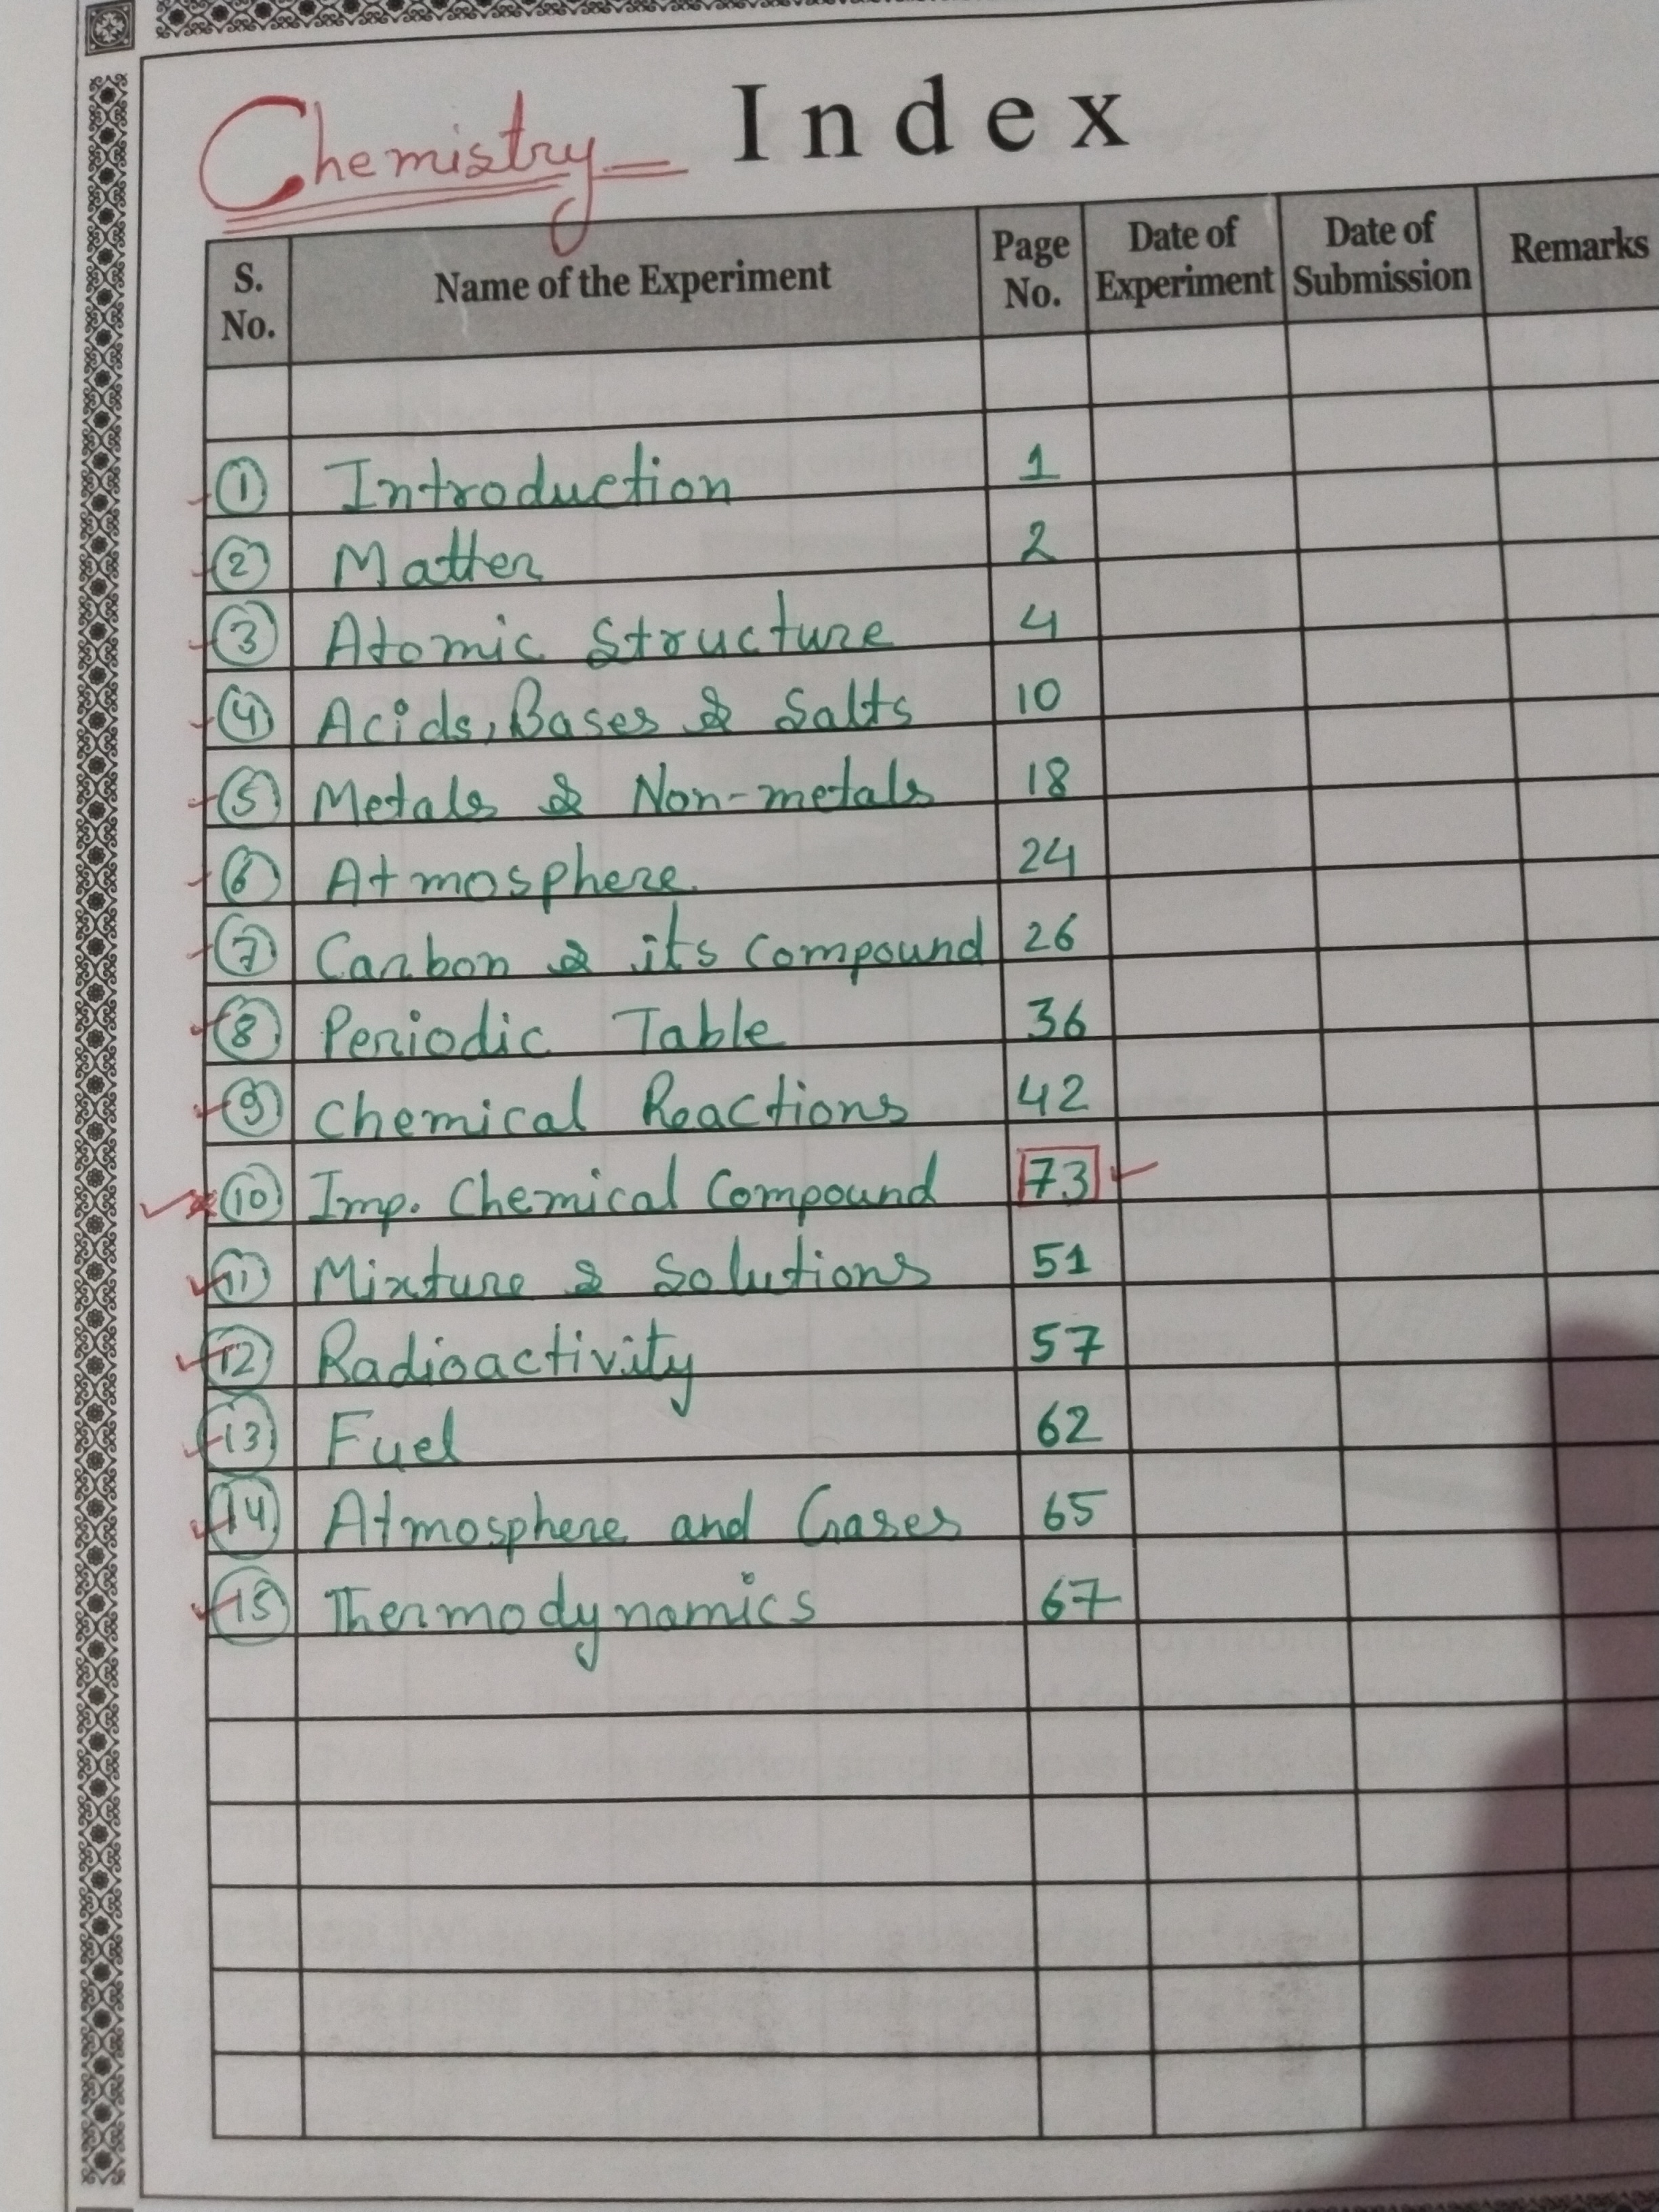 Chemistry Index
S. No. Name of the Experiment Page No. Date of Experiment Date of Submission Remarks
1 Introduction 1
2 Matter 2
3 Atomic Structure 4
4 Acids, Bases & Salts 10
5 Metals & Non-metals 18
6 Atmosphere 24
7 Carbon & its Compound 26
8 Periodic Table 36
9 Chemical Reactions 42
10 Imp. Chemical Compound 73
11 Mixture & Solutions 51
12 Radioactivity 57
13 Fuel 62
14 Atmosphere and Gases 65
15 Thermodynamics 67